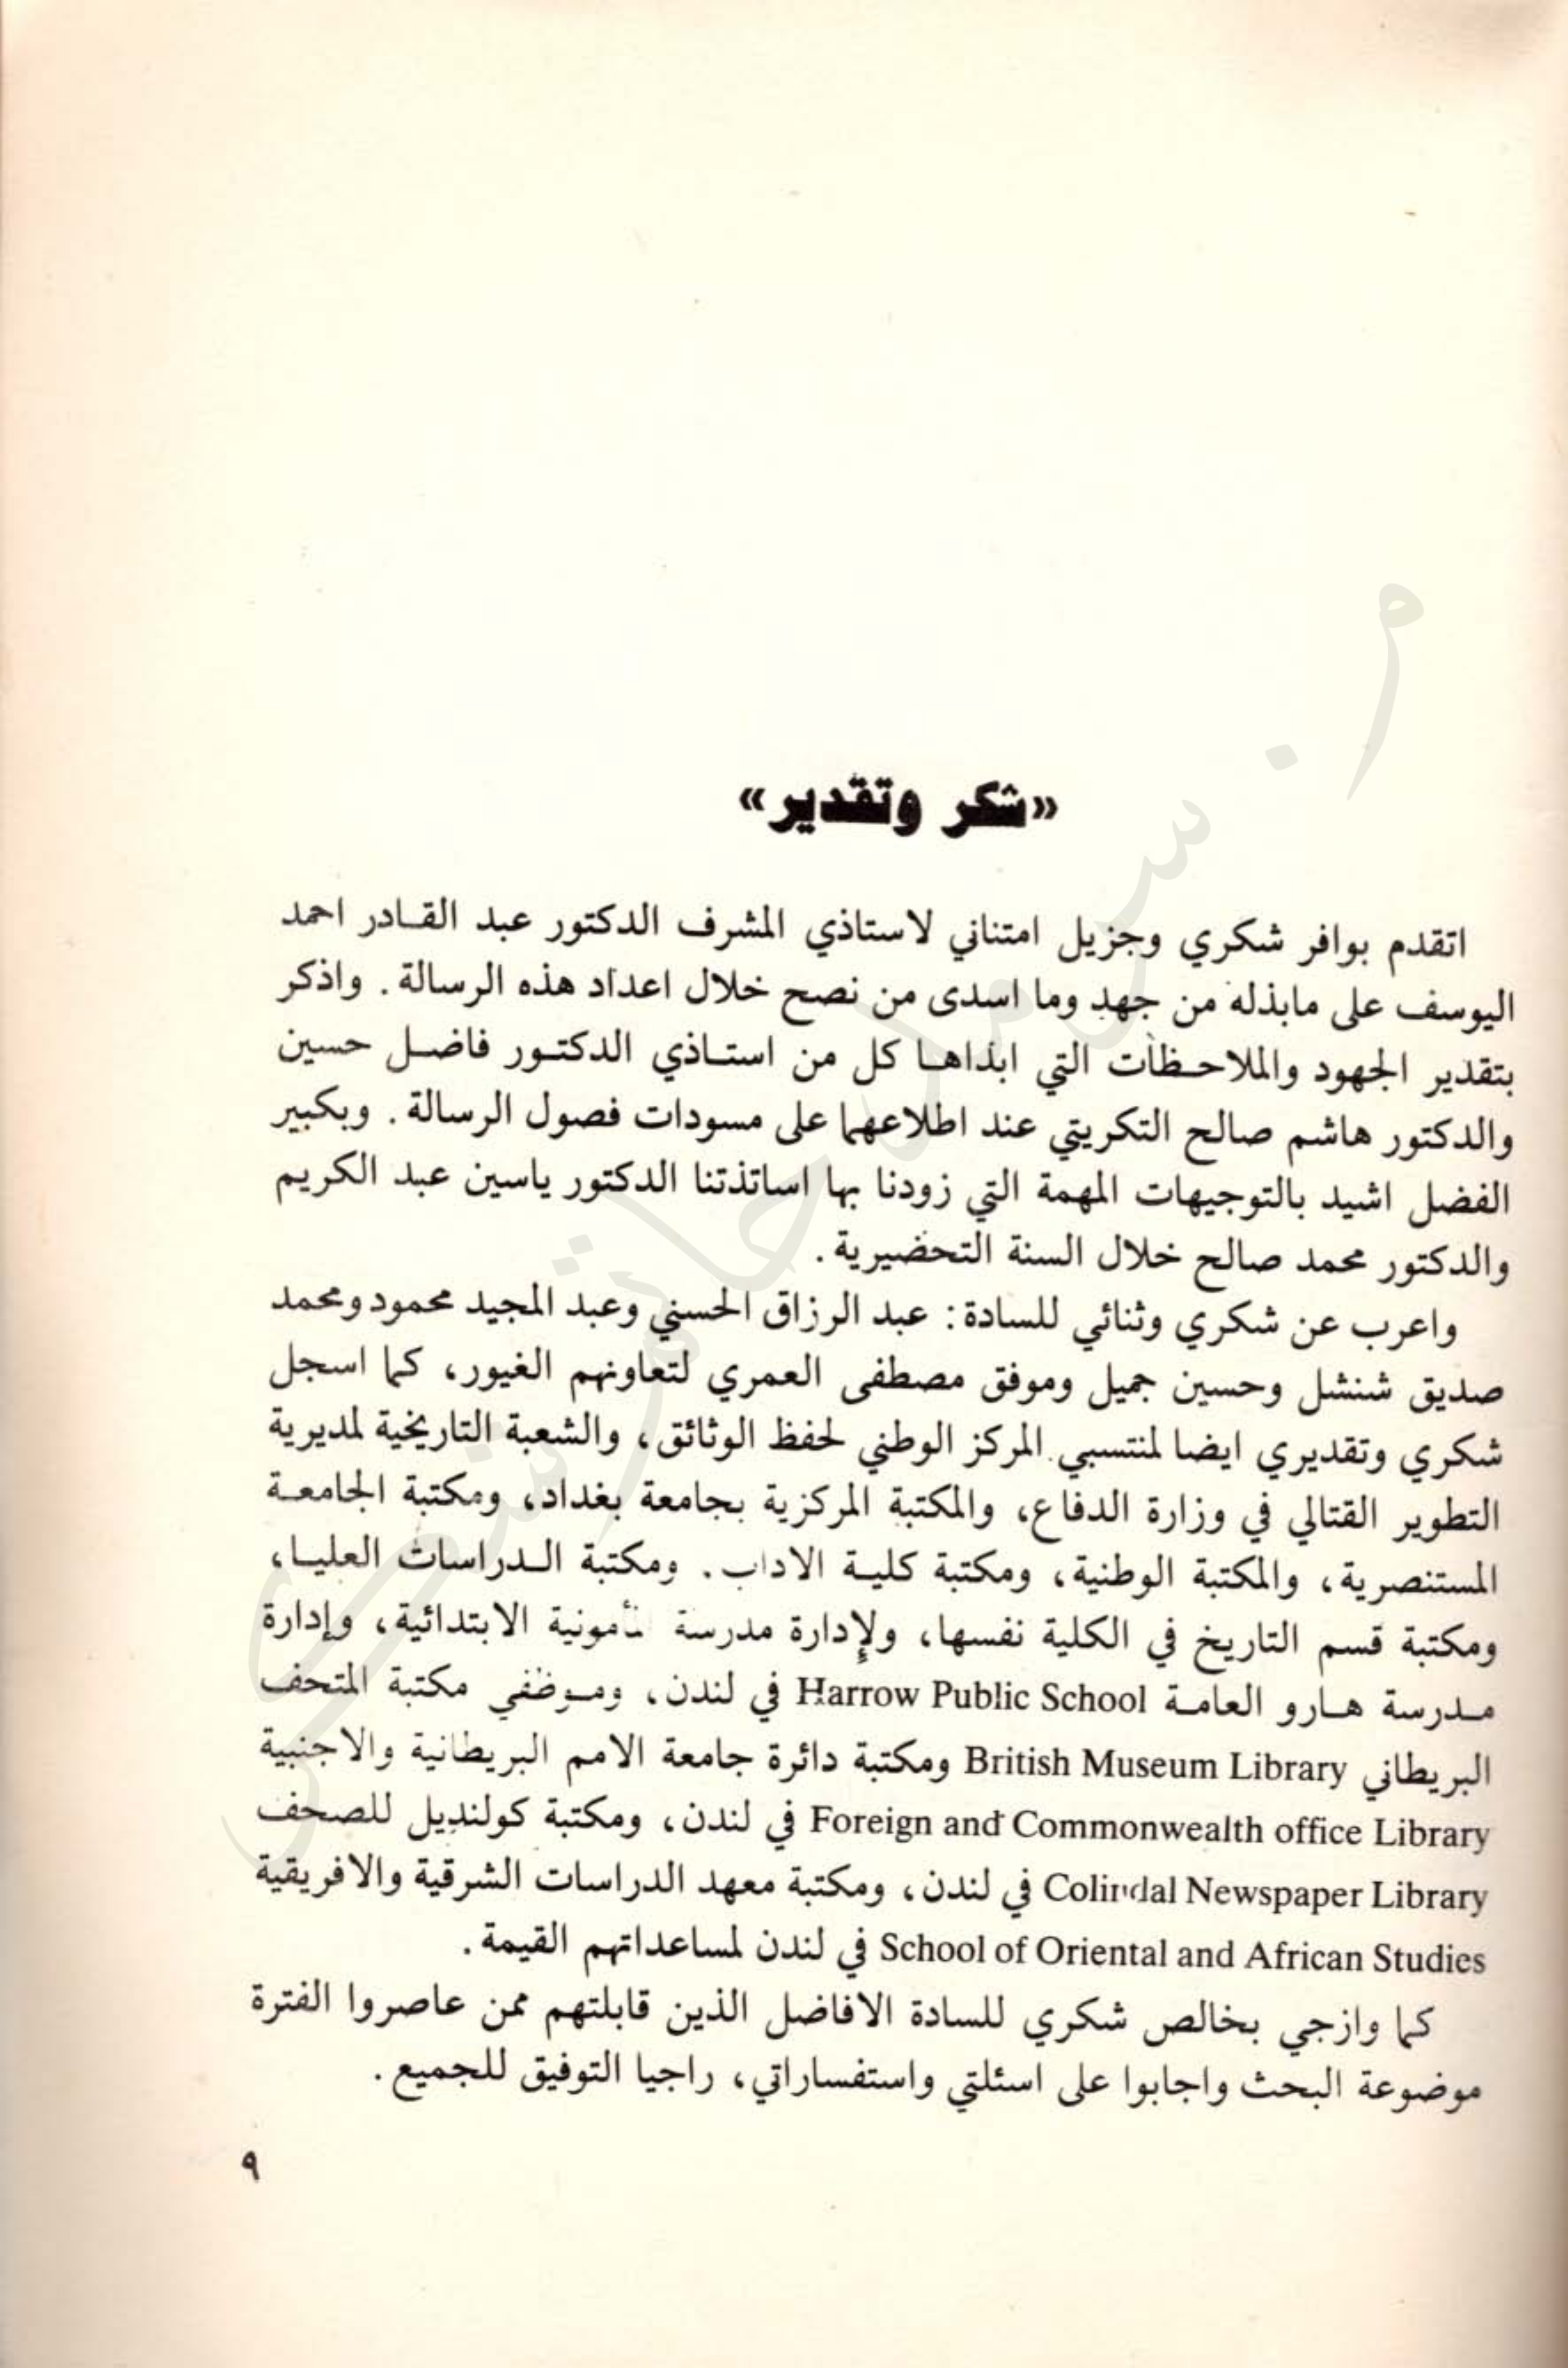 «شكر وتقدير»
اتقدم بوافر شكري وجزيل امتناني لاستاذي المشرف الدكتور عبد القادر احمد
اليوسف على مابذله من جهد وما اسدى من نصح خلال اعداد هذه الرسالة. واذكر
بتقدير الجهود والملاحظات التي ابداها كل من استاذي الدكتور فاضل حسين
والدكتور هاشم صالح التكريتي عند اطلاعهما على مسودات فصول الرسالة. وبكبير
الفضل اشيد بالتوجيهات المهمة التي زودنا بها اساتذتنا الدكتور ياسين عبد الكريم
والدكتور محمد صالح خلال السنة التحضيرية.
واعرب عن شكري وثنائي للسادة: عبد الرزاق الحسني وعبد المجيد محمود ومحمد
صديق شنشل وحسين جميل وموفق مصطفى العمري لتعاونهم الغيور، كما اسجل
شكري وتقديري ايضا لمنتسبي المركز الوطني لحفظ الوثائق، والشعبة التاريخية لمديرية
التطوير القتالي في وزارة الدفاع، والمكتبة المركزية بجامعة بغداد، ومكتبة الجامعة
المستنصرية، والمكتبة الوطنية، ومكتبة كلية الاداب. ومكتبة الدراسات العليا،
ومكتبة قسم التاريخ في الكلية نفسها، ولإدارة مدرسة المأمونية الابتدائية، وإدارة
مدرسة هارو العامة Harrow Public School في لندن، وموظفي مكتبة المتحف
البريطاني British Museum Library ومكتبة دائرة جامعة الامم البريطانية والاجنبية
Foreign and Commonwealth office Library في لندن، ومكتبة كولنديل للصحف
Colindal Newspaper Library في لندن، ومكتبة معهد الدراسات الشرقية والافريقية
School of Oriental and African Studies في لندن لمساعداتهم القيمة.
كما وازجي بخالص شكري للسادة الافاضل الذين قابلتهم ممن عاصروا الفترة
موضوعة البحث واجابوا على اسئلتي واستفساراتي، راجيا التوفيق للجميع.
٩